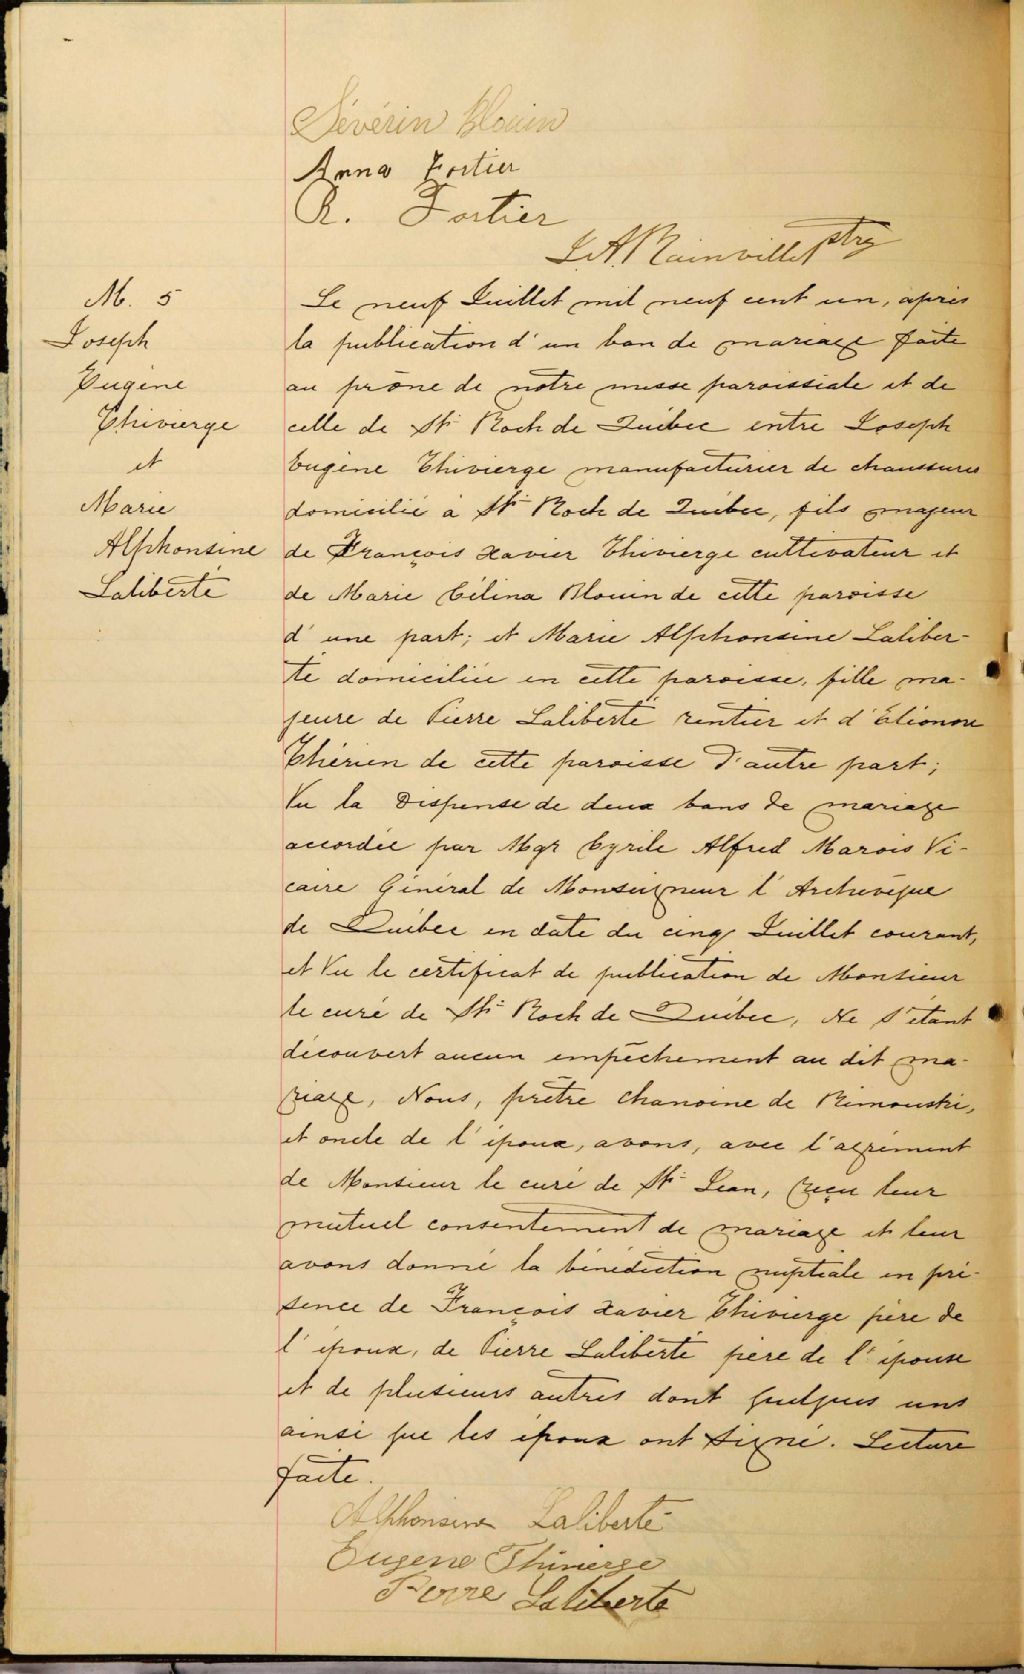 Sévérin Blouin
Anna Fortier
R. Fortier
J. A. Rainville ptre
M. 5
Joseph
Eugène
Thivierge
et
Marie
Alphonsine
Laliberté
Le neuf Juillet mil neuf cent un, après
la publication d'un ban de mariage faite
au prône de notre messe paroissiale et de
celle de St. Roch de Québec entre Joseph
Eugène Thivierge manufacturier de chaussures
domicilié à St. Roch de Québec, fils majeur
de François Xavier Thivierge cultivateur et
de Marie Célina Blouin de cette paroisse
d'une part; et Marie Alphonsine Laliber-
té domiciliée en cette paroisse, fille ma-
jeure de Pierre Laliberté rentier et d'Eléonore
Thérien de cette paroisse d'autre part;
Vu la Dispense de deux bans de mariage
accordée par Mgr Cyrile Alfred Marois Vi-
caire Général de Monseigneur l'Archevêque
de Québec en date du cinq Juillet courant,
et Vu le certificat de publication de Monsieur
le curé de St. Roch de Québec, Ne s'étant
découvert aucun empêchement au dit ma-
riage, Nous, prêtre chanoine de Rimouski,
et oncle de l'époux, avons, avec l'agrément
de Monsieur le curé de St. Jean, reçu leur
mutuel consentement de mariage et leur
avons donné la bénédiction nuptiale en pré-
sence de François Xavier Thivierge père de
l'époux, de Pierre Laliberté père de l'épouse
et de plusieurs autres dont quelques uns
ainsi que les époux ont signé. Lecture
faite.
Alphonsine Laliberté
Eugene Thivierge
Pierre Laliberte